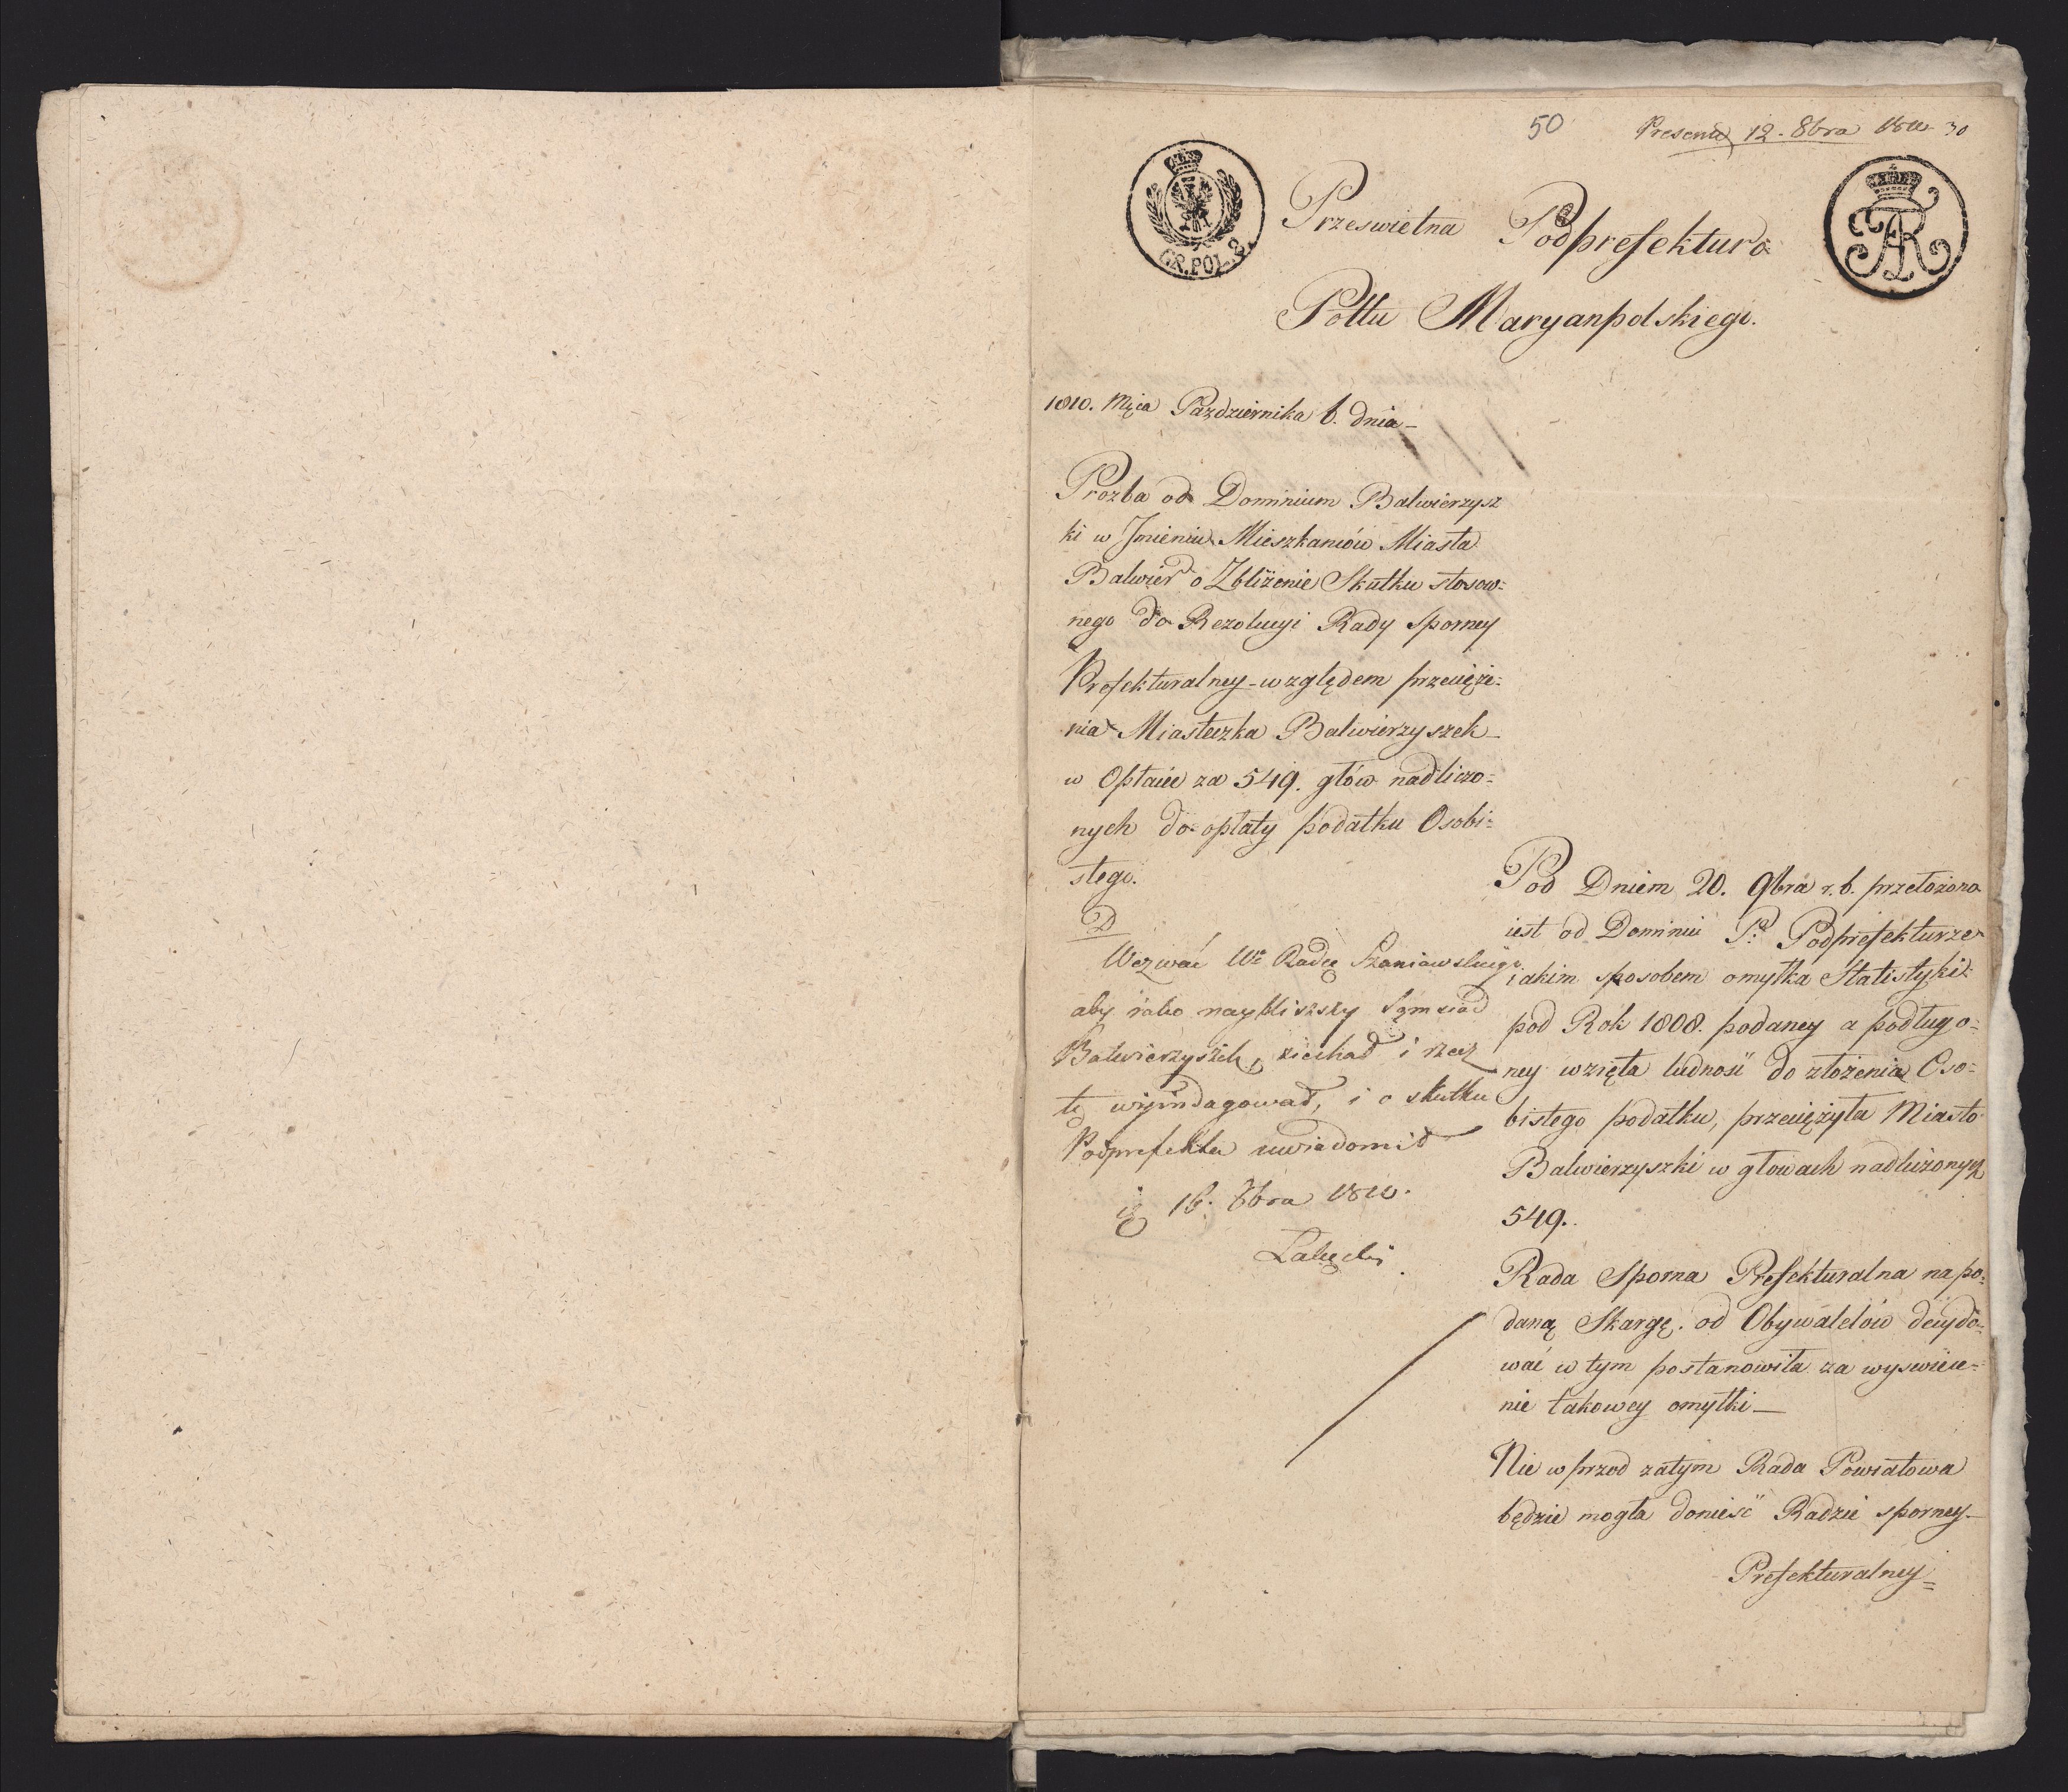 50
Present 12. 8bra 1810
30
GR. POL. 8.
Przeswietna Podprefektura
Pottu Maryanpolskiego.
1810. Mçca Października 6. dnia –
Prozba od Dominium Balwierzysz
ki w Jmieniu Mieszkancow Miasta
Balwier o Zbliżenie Skutku stosow=
nego do Rezolucyi Rady Sporney
Prefekturalney – względem przeciąże=
nia Miasteczka Balwierzyszek –
w Opłacie za 549. głów nadliczo=
nych do opłaty podatku Osobi=
stego.
D
Wezwać Wo Radcę Szaniawskiego
aby iako naybliższy Sąmsiad
Balwierzyszek, ziechał i rzecz
tę wyindagował, i o skutku
Podprefekta uwiadomił
16. 8bra 1810.
Pod Dniem 20. 9bra r. b. przełożono
iest od Dominii P. Podprefekturze
iakim sposobem omyłka Statistyki
pod Rok 1808. podaney a podług o=
ney wzięta ludność do złożenia Oso=
bistego podatku, przeciążyła Miasto
Balwierzyszki w głowach nadliczonych
549.
Rada Sporna Prefekturalna na po=
daną Skargę od Obywatelów decydo=
wać w tym postanowiła za wyswiece=
nie takowey omyłki –
Nie w przod zatym Rada Powiatowa
będzie mogła donieść Radzie sporney –
Prefekturalney =